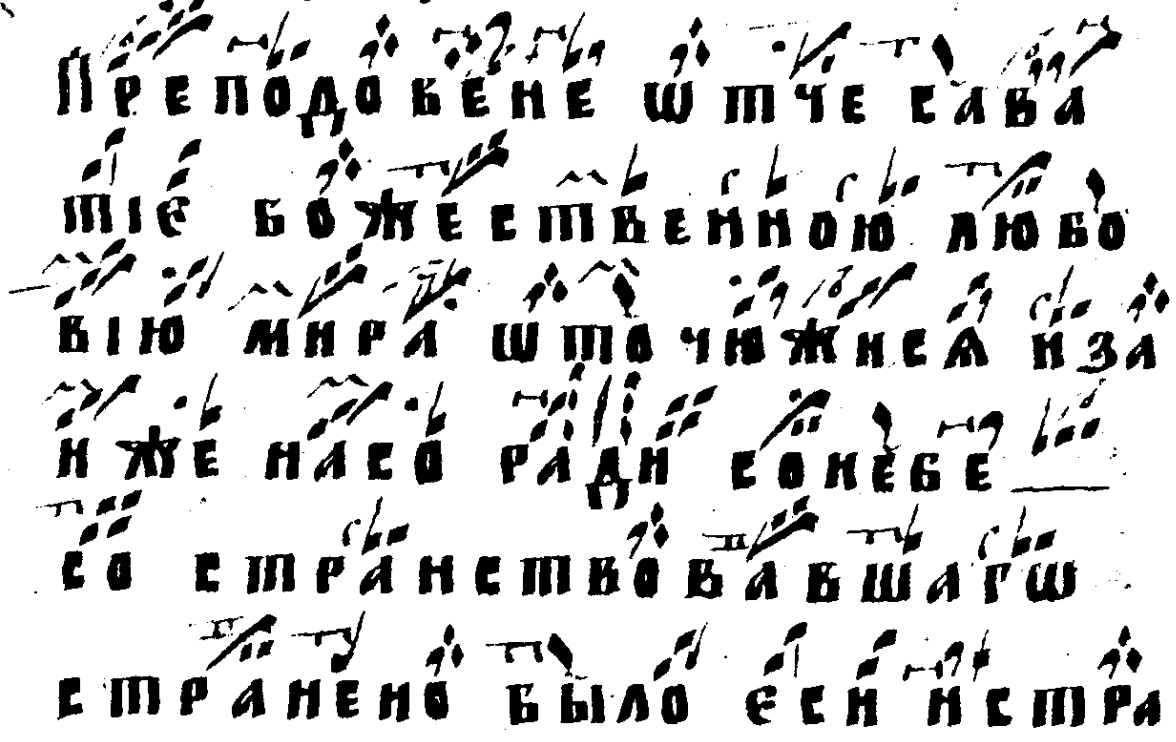 Преподобене ѡтче сава
тіє божественною любо
вію мира ѡточюжисѧ иза
иже насо ради со небе
со странствовавшагѡ
странено было єси истра